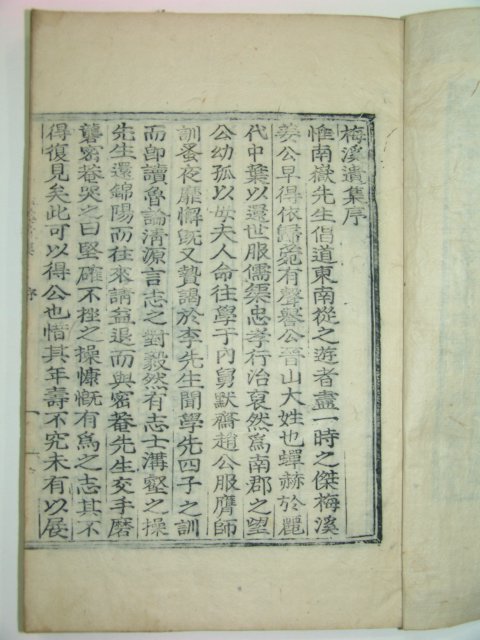 梅溪遺集序
惟南嶽先生倡道東南從之遊者盡一時之傑梅溪
姜公早得依歸菀有聲譽公晉山大姓也蟬赫於麗
代中葉以還世服儒渠忠孝行治裒然爲南郡之望
公幼孤以母夫人命往學于內舅默齋趙公服膺師
訓蚤夜靡懈旣又贄謁於李先生聞學先四子之訓
而卽讀魯論淸源言志之對毅然有志士溝壑之操
先生還錦陽而往來請益退而與密菴先生交手磨
礱密菴哭之曰堅確不挫之操慷慨有爲之志其不
得復見矣此可以得公也惜其年壽不究未有以展
序